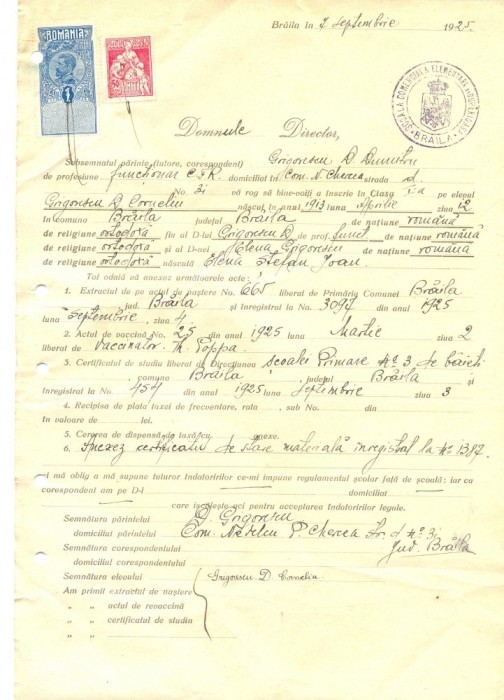 Brăila în 7 Septembrie 1925.
ROMANIA
1
ȘCOALA COMERCIALĂ ELEMENTARĂ
BRĂILA
Domnule Director,
Subsemnatul părinte (tutore, corespondent) Grigorescu D Dumitru
de profesiune funcționar C.F.R. domiciliat în Com. N. Cherea strada d.
No. 31 vă rog să bine-voiți a înscrie în Clasa I-a pe elevul
Grigorescu D. Corneliu născut în anul 1913 luna Aprilie ziua 12
în comuna Brăila județul Brăila de națiune română
de religiune ortodoxă fiu al D-lui Grigorescu D. de prof. funct. de națiune română
de religiune ortodoxă și al D-nei Elena Grigorescu de națiune română
de religiune ortodoxă născută Elena Ștefan Ioan.
Tot odată să anexez următoarele acte:
1. Extractul de pe actul de naștere No. 665 liberat de Primăria Comunei Brăila
jud. Brăila și înregistrat la No. 3094 din anul 1925
luna Septembrie, ziua 4
2. Actul de vaccină No. 25 din anul 1925 luna Martie ziua 2
liberat de Vaccinator Th. Poppa.
3. Certificatul de studiu liberat de Direcțiunea școalei Primare No. 3 de băieți
comuna Brăila, județul Brăila și
înregistrat la No. 454 din anul 1925 luna Septembrie ziua 3
4. Recipisa de plata taxei de frecventare, rata , sub No. din
în valoare de lei.
5. Cererea de dispensă de taxă cu anexe.
6. Anexez certificatul de stare materială înregistrat la No. 1387.
Îmi mă oblig a mă supune tuturor îndatoririlor ce-mi impune regulamentul școlar față de școală: iar cu
corespondent am pe D-l domiciliat
care iscălește aci pentru acceptarea îndatoririlor legale.
Semnătura părintelui D. Grigorescu
domiciliul părintelui Com. Nedelcu P. Cherea Str. d No. 31
Semnătura corespondentului Jud. Brăila
domiciliul corespondentului
Semnătura elevului Grigorescu D. Corneliu
Am primit extractul de naștere
„ „ actul de reoaccină
„ „ certificatul de studiu
„ „